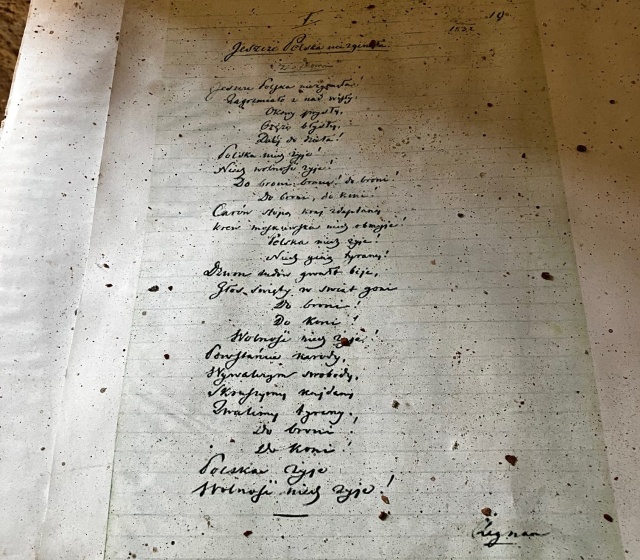 I
19
Jeszcze Polska nie zginęła
Jeszcze Polska nie zginęła!
Zagrzmiało z nad Wisły
Okowy prysły,
Polska niech żyje!
Niech wolność żyje!
Do broni, broni! do broni!
Do broni, do koni!
Carów stopą kraj zdeptany
Krew moskiewska niech obmyje!
Polska niech żyje!
Niech giną tyrany!
Dzwon ludów gwałt bije,
Głos święty w świat goni
Do broni!
Do koni!
Wolność niech żyje!
Powstańcie narody,
Wywalczym swobody,
Skruszymy kajdany
Zwalimy tyrany,
Do broni!
Do koni!
Polska żyje
Wolność niech żyje!